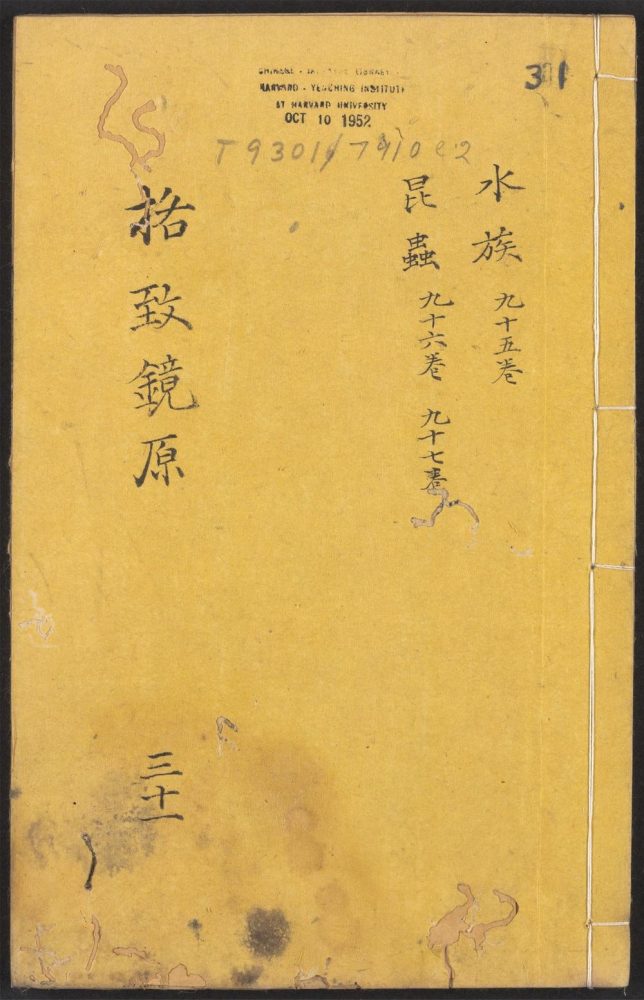 CHINESE - JAPANESE LIBRARY
HARVARD - YENCHING INSTITUTE
AT HARVARD UNIVERSITY
OCT 10 1952
31
T 9301/7910 c2
水族 九十五卷
昆蟲 九十六卷 九十七卷
格致鏡原
三十一